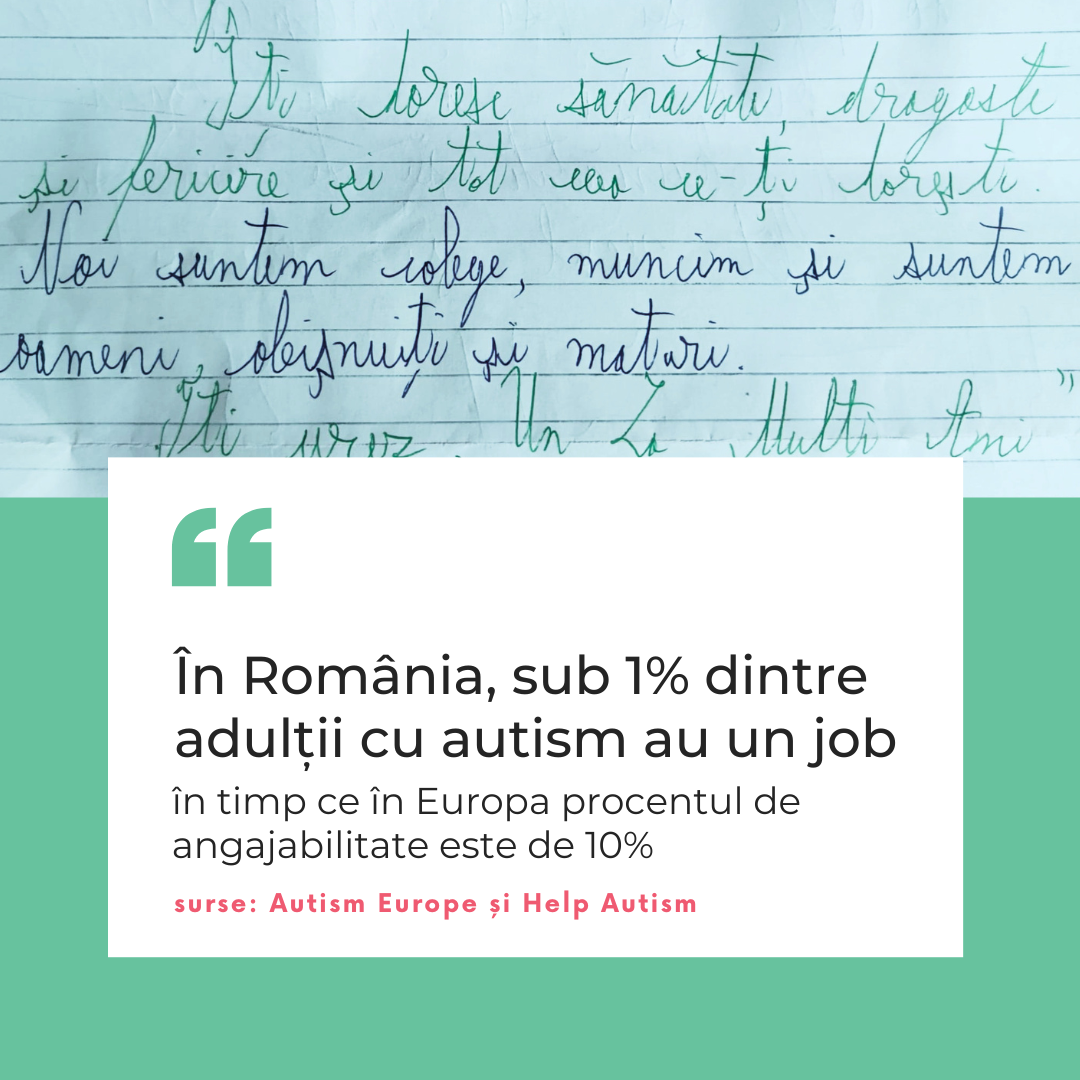 "Îți doresc sănătate, dragoste
și fericire și tot ceea ce-ți dorești.
Noi suntem colege, muncim și suntem
oameni, obișnuiți și maturi.
Îți urez Un La Mulți Ani"
“
În România, sub 1% dintre
adulții cu autism au un job
în timp ce în Europa procentul de
angajabilitate este de 10%
surse: Autism Europe și Help Autism